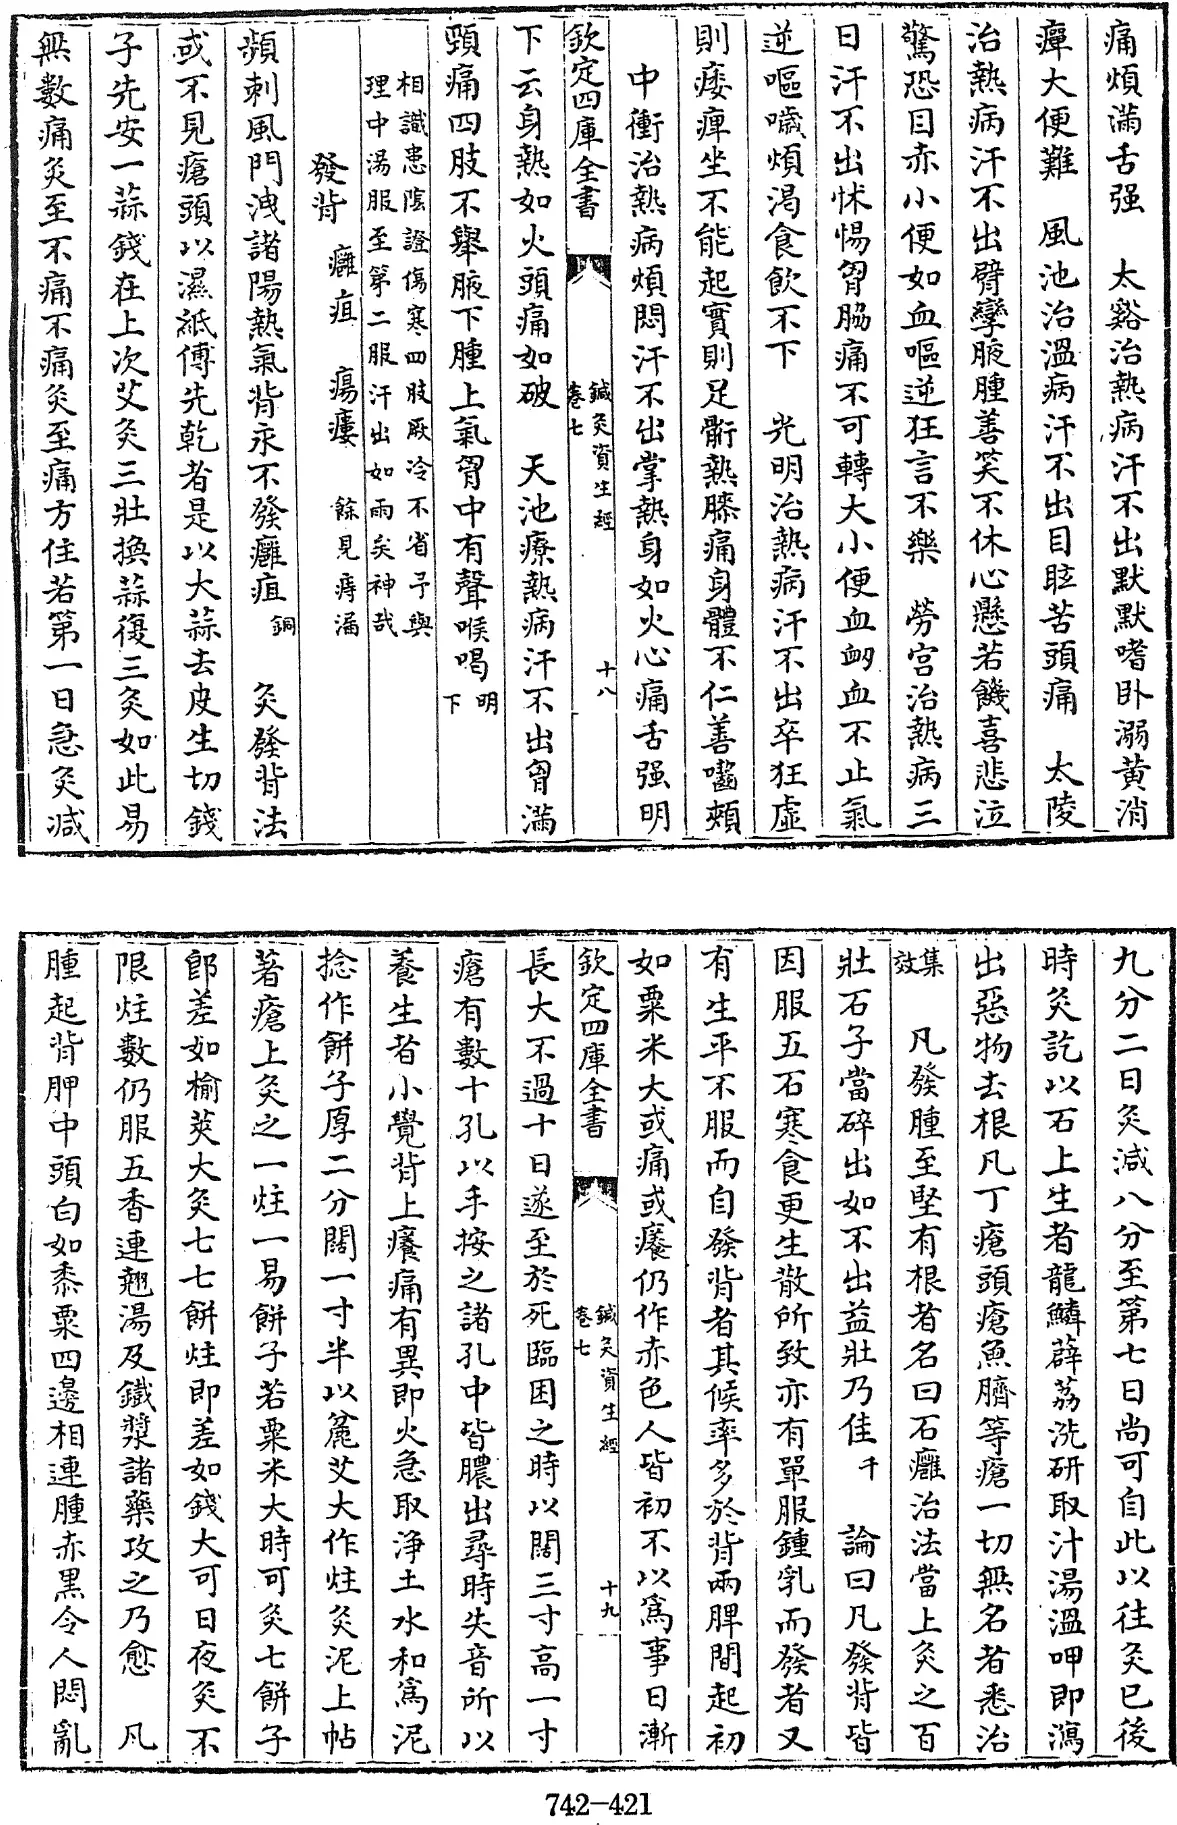 痛煩滿舌强　太谿治熱病汗不出默默嗜卧溺黄消
癉大便難　風池治溫病汗不出目眩苦頭痛　太陵
治熱病汗不出臂攣腋腫善笑不休心懸若饑喜悲泣
驚恐目赤小便如血嘔逆狂言不樂　勞宫治熱病三
日汗不出怵惕胷脇痛不可轉大小便血衂血不止氣
逆嘔噦煩渴食飲不下　光明治熱病汗不出卒狂虛
則痿痺坐不能起實則足胻熱膝痛身體不仁善嚙頰
中衝治熱病煩悶汗不出掌熱身如火心痛舌强明
欽定四庫全書　鍼灸資生經卷七　十八
下云身熱如火頭痛如破　天池療熱病汗不出胷滿
頸痛四肢不舉腋下腫上氣胷中有聲喉鳴明下
相識患陰證傷寒四肢厥冷不省予與
理中湯服至第二服汗出如雨矣神哉
發背　癰疽　瘍瘻　餘見痔漏
頻刺風門洩諸陽熱氣背永不發癰疽銅　灸發背法
或不見瘡頭以濕紙傅先乾者是以大蒜去皮生切錢
子先安一蒜錢在上次艾灸三壯換蒜復三灸如此易
無數痛灸至不痛不痛灸至痛方住若第一日急灸減
九分二日灸減八分至第七日尚可自此以往灸已後
時灸訖以石上生者龍鱗薜荔洗研取汁湯溫呷即瀉
出惡物去根凡丁瘡頭瘡魚臍等瘡一切無名者悉治
集效　凡發腫至堅有根者名曰石癰治法當上灸之百
壯石子當碎出如不出益壯乃佳千　論曰凡發背皆
因服五石寒食更生散所致亦有單服鍾乳而發者又
有生平不服而自發背者其候率多於背兩胛間起初
如粟米大或痛或癢仍作赤色人皆初不以爲事日漸
欽定四庫全書　鍼灸資生經卷七　十九
長大不過十日遂至於死臨困之時以闊三寸高一寸
瘡有數十孔以手按之諸孔中皆膿出尋時失音所以
養生者小覺背上癢痛有異即火急取浄土水和爲泥
捻作餅子厚二分闊一寸半以麄艾大作炷灸泥上帖
著瘡上灸之一炷一易餅子若粟米大時可灸七餅子
即差如榆莢大灸七七餅炷即差如錢大可日夜灸不
限炷數仍服五香連翹湯及鐵漿諸藥攻之乃愈　凡
腫起背胛中頭白如黍粟四邊相連腫赤黑令人悶亂
742-421